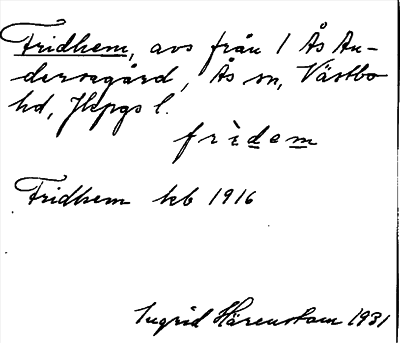 Fridhem, avs från 1 Ås An-
dersegård, Ås sn, Västbo
hd, Jkpgs l.
fridem
Fridhem kb 1916
Ingrid Härenstam 1931